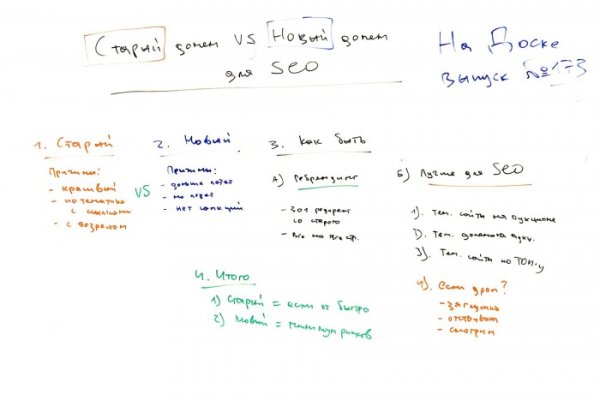 Старый домен VS Новый домен
для SEO
На Доске
Выпуск №173
1. Старый
Причины:
- красивый
- по тематике
с ссылками
- с возрастом
VS
2. Новый
Причины:
- дольше
- не
- нет санкций
3. Как быть
А) Ребрендинг
- 301 редирект
со старого
- Все на все стр.
Б) Лучше для SEO
1). Тем. сайты на аукционе
2). Тем. домены
3). Тем. сайты по ТОП-у
4). Если дроп?
- заглушка
- отстаиваем
- смотрим
4. Итого
1) Старый = если ок быстро
2) Новый = минимум рисков